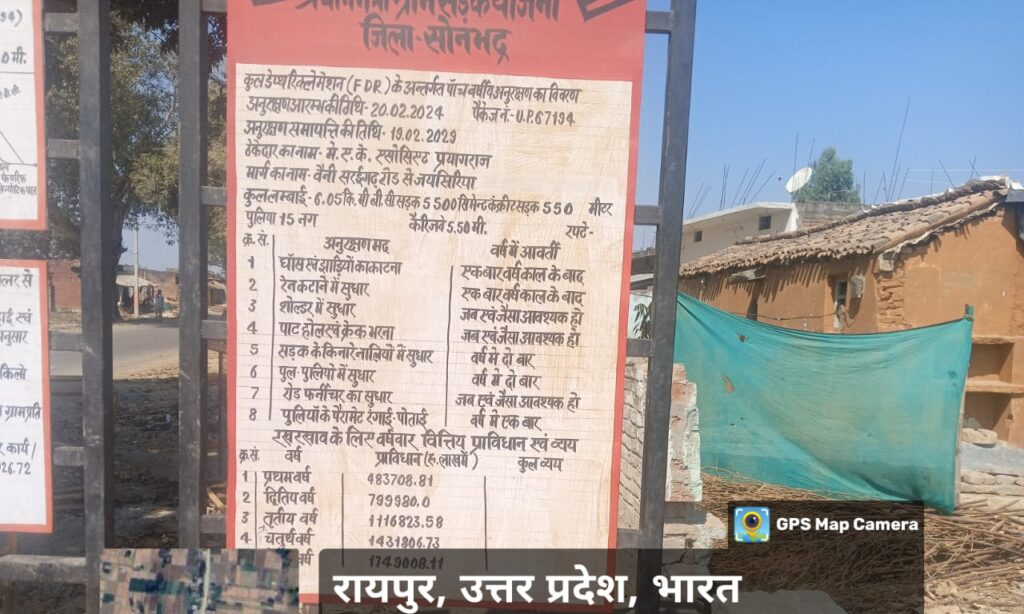 जिला-सोनभद्र
कुल डेप्थ रिक्लेमेशन (FDR) के अन्तर्गत पाँच वर्षीय अनुरक्षण का विवरण
अनुरक्षण आरम्भ की तिथि- 20.02.2024 पैकेज नं- U.P.67194
अनुरक्षण समाप्ति की तिथि- 19.02.2029
ठेकेदार का नाम- मे. ए. के. एसोसिएट प्रयागराज
मार्ग का नाम- वैनी सरईगढ़ रोड से जयसिरिया
कुल लम्बाई- 6.05 कि.मी बी.सी सड़क 5500 सिमेन्ट कंक्रीट सड़क 550 मीटर
पुलिया 15 नग कैरीजवे 5.50 मी. रपटे-
क्र.सं. अनुरक्षण मद वर्ष में आवर्ती
1 घाँस एवं झाड़ियों का काटना एक बार वर्षा काल के बाद
2 रेन कटाने में सुधार एक बार वर्षा काल के बाद
3 शोल्डर में सुधार जब एवं जैसा आवश्यक हो
4 पाट होल एवं क्रेक भरना जब एवं जैसा आवश्यक हो
5 सड़क के किनारे नालियों में सुधार वर्ष मे दो बार
6 पुल-पुलियो में सुधार वर्ष मे दो बार
7 रोड फर्नीचर का सुधार जब एवं जैसा आवश्यक हो
8 पुलियों के पैरामेट रंगाई-पोताई वर्ष में एक बार
रखरखाव के लिए वर्षवार वित्तिय प्राविधान एवं व्यय
क्र.सं. वर्ष प्राविधान (रु.लाख में) कुल व्यय
1 प्रथम वर्ष 483708.81
2 द्वितिय वर्ष 799980.0
3 तृतीय वर्ष 1116823.58
4 चतुर्थ वर्ष 1431806.73
वर्ष 1749008.11
GPS Map Camera
रायपुर, उत्तर प्रदेश, भारत